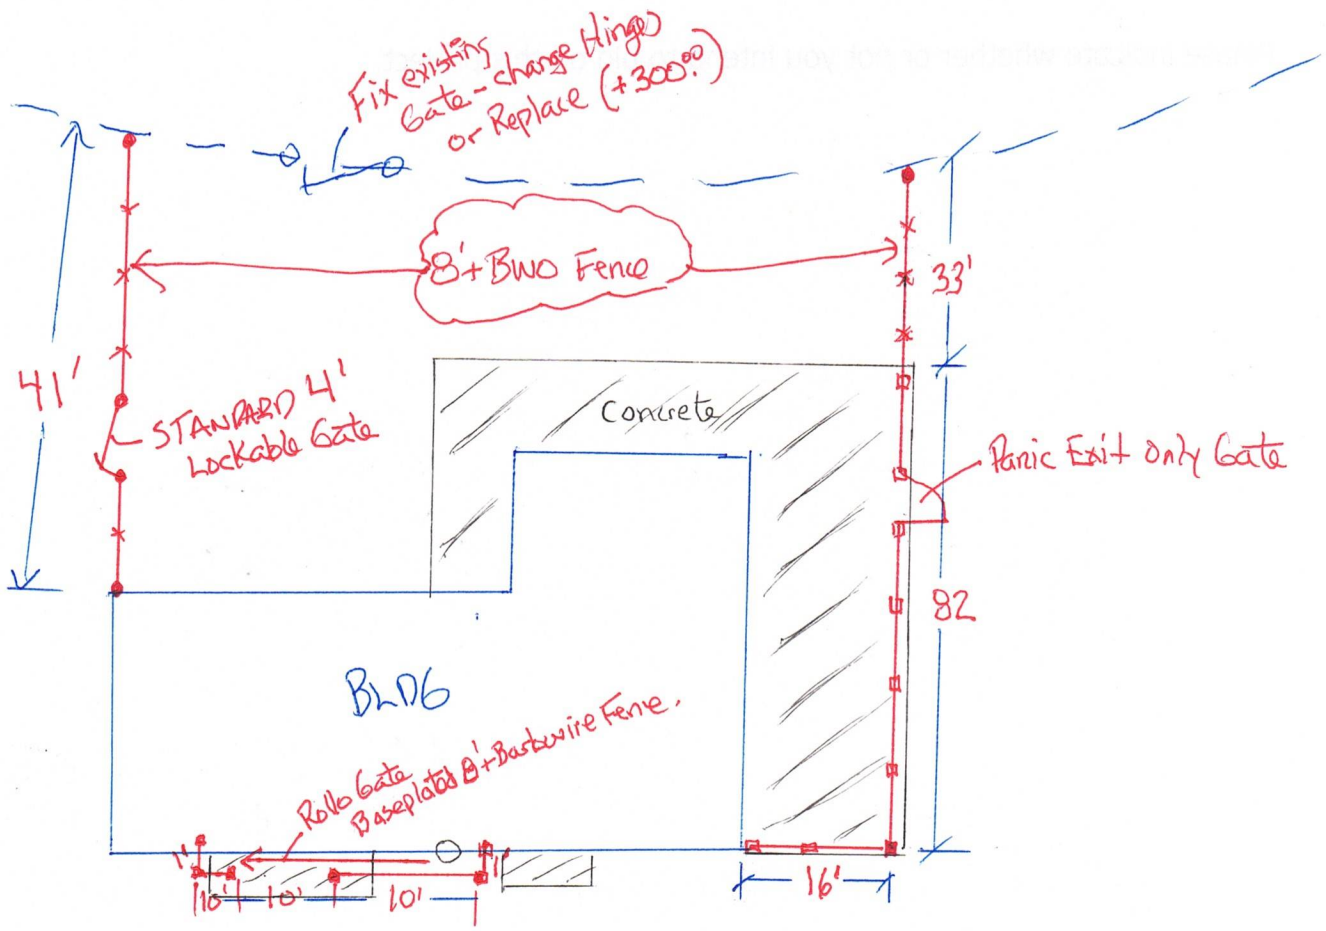 Fix existing
Gate - change Hinges
or Replace (+300.00)
8'+BWO Fence
33'
41'
STANDARD 4'
Lockable Gate
Concrete
Panic Exit Only Gate
82
BLDG
Rollo Gate
Baseplated 8'+Barbwire Fence.
1'
1'
10'
10'
10'
16'